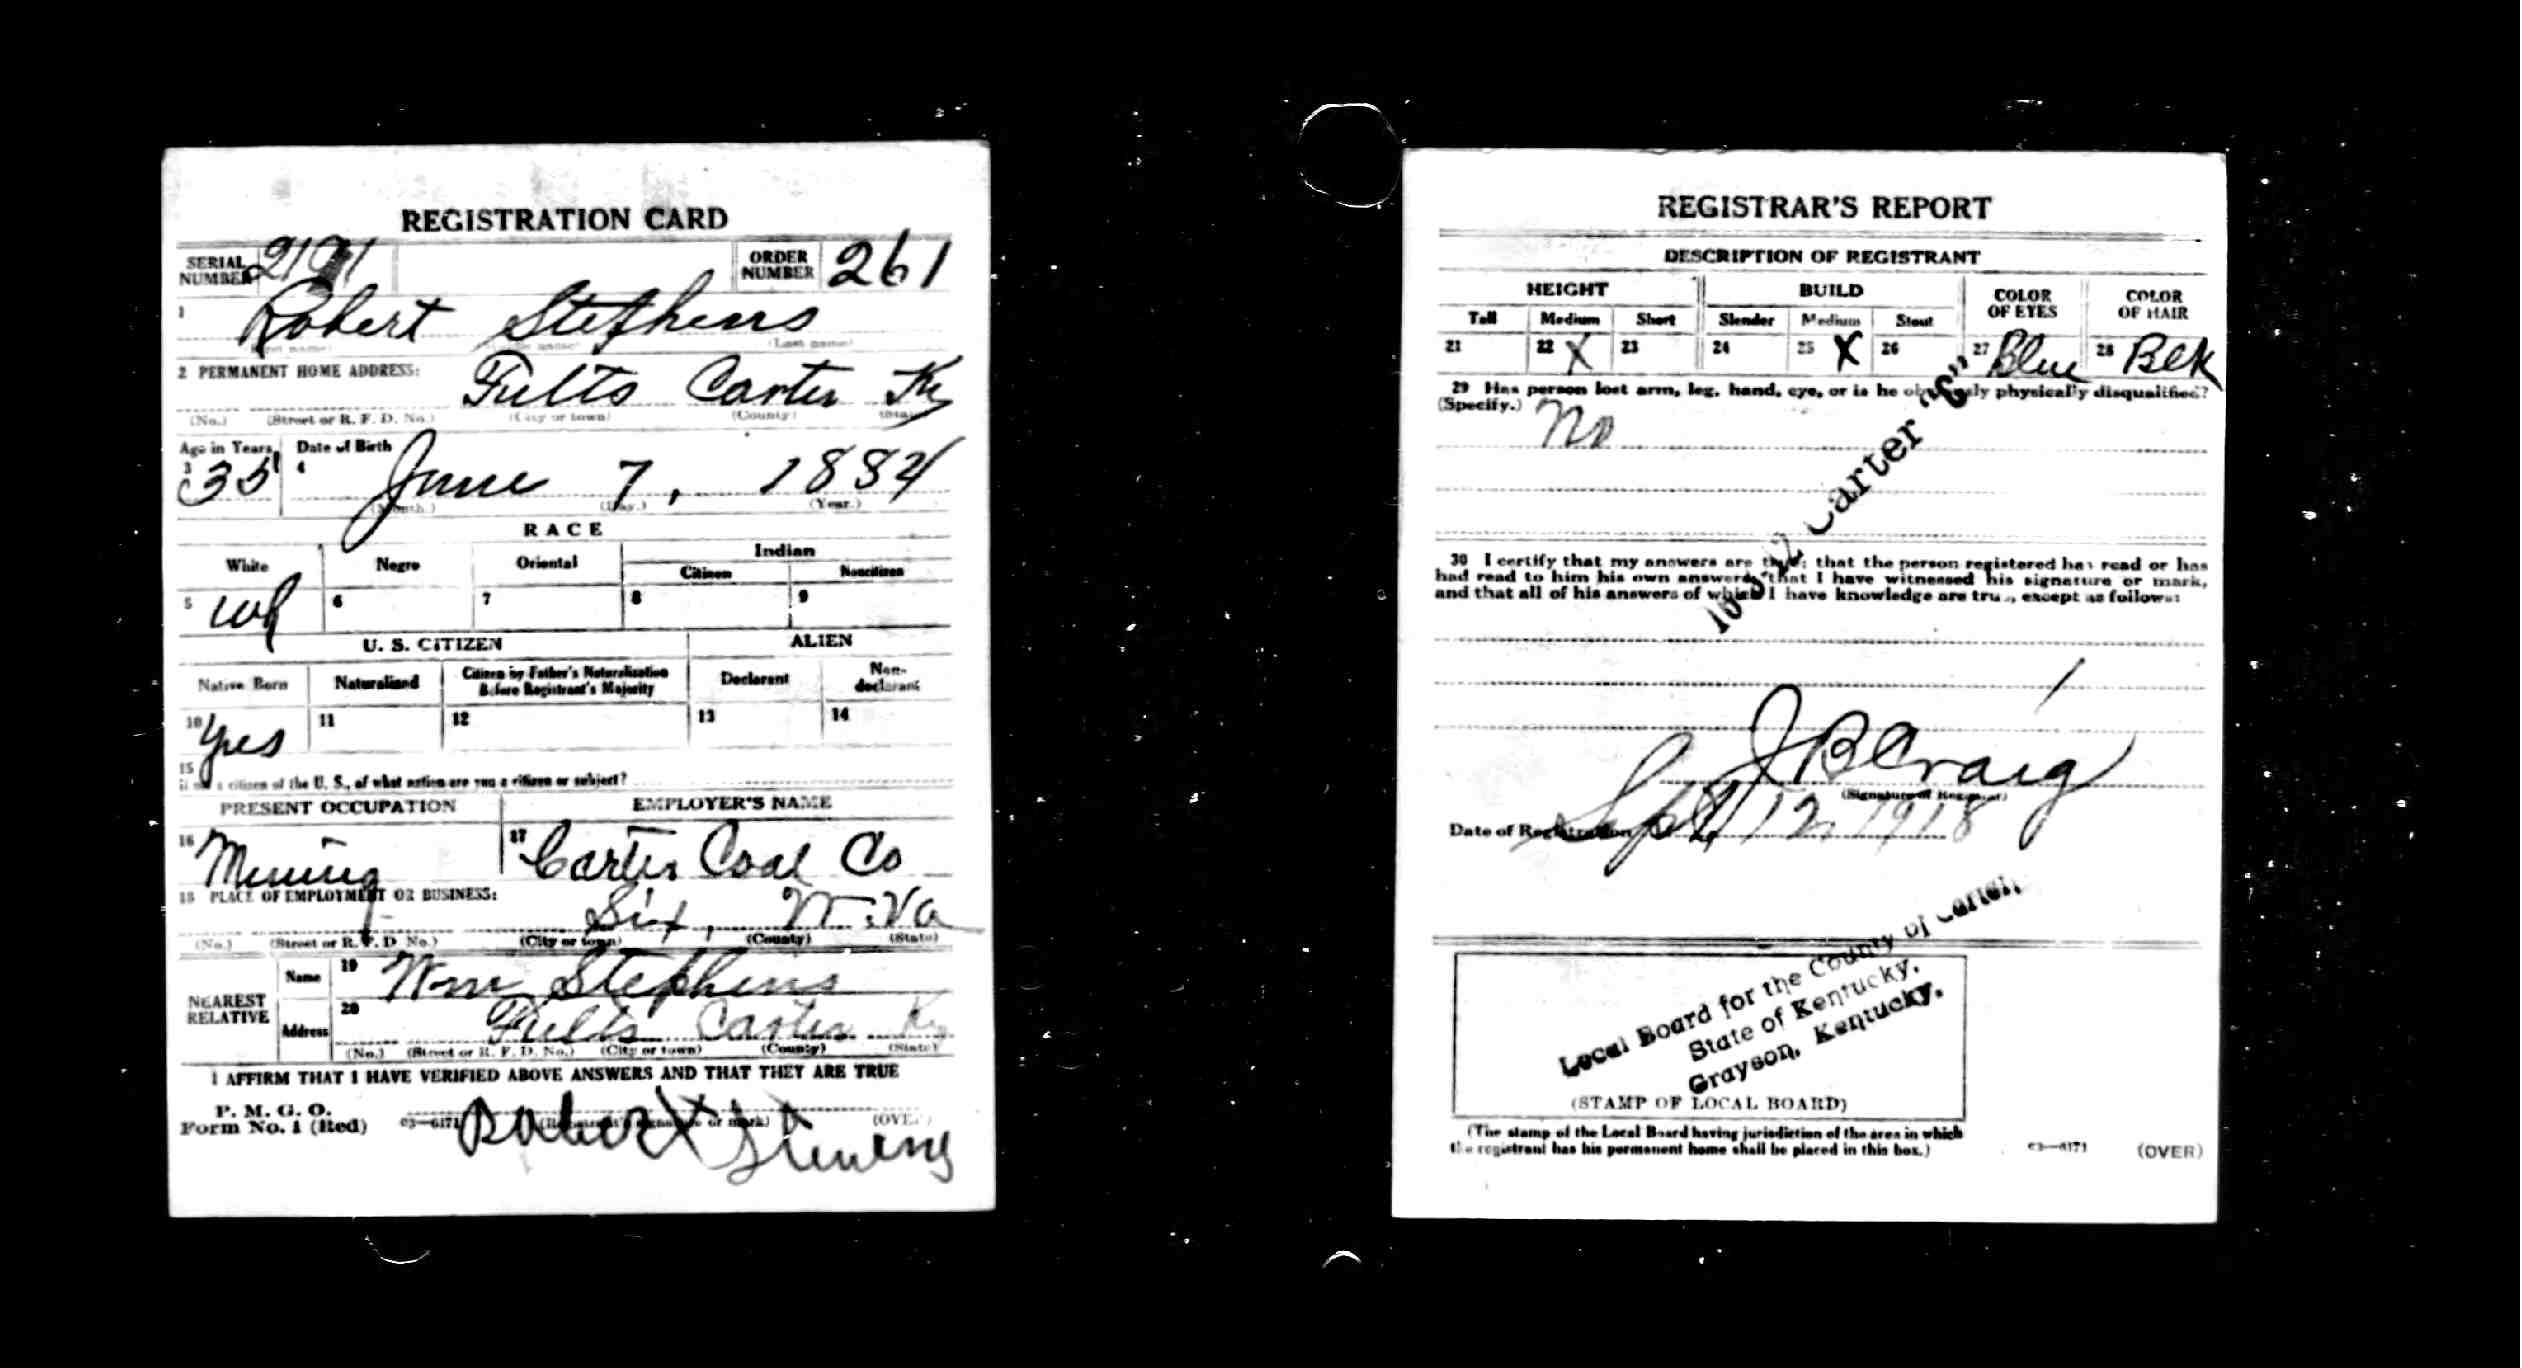 REGISTRATION CARD
SERIAL NUMBER 2191 ORDER NUMBER 261
1 Robert Stephens
(First name) (Middle name) (Last name)
2 PERMANENT HOME ADDRESS:
Fults Carter Ky
(No.) (Street or R. F. D. No.) (City or town) (County) (State)
Age in Years Date of Birth
3 35 4 June 7, 1884
(Month.) (Day.) (Year.)
RACE
White Negro Oriental Indian
Citizen Noncitizen
5 Wh 6 7 8 9
U. S. CITIZEN ALIEN
Native Born Naturalized Citizen by Father's Naturalization Before Registrant's Majority Declarant Non-declarant
10 Yes 11 12 13 14
15
If not a citizen of the U. S., of what nation are you a citizen or subject?
PRESENT OCCUPATION EMPLOYER'S NAME
16 Mining 17 Carter Coal Co
18 PLACE OF EMPLOYMENT OR BUSINESS:
Six, W. Va
(No.) (Street or R. F. D. No.) (City or town) (County) (State)
NEAREST RELATIVE
Name 19 Wm Stephens
Address 20 Fults Carter Ky
(No.) (Street or R. F. D. No.) (City or town) (County) (State)
I AFFIRM THAT I HAVE VERIFIED ABOVE ANSWERS AND THAT THEY ARE TRUE
P. M. G. O.
Form No. 1 (Red) 03—6171 (Registrant's signature or mark) (OVER)
Robert Stevens
REGISTRAR'S REPORT
DESCRIPTION OF REGISTRANT
HEIGHT BUILD COLOR OF EYES COLOR OF HAIR
Tall Medium Short Slender Medium Stout
21 22 X 23 24 25 X 26 27 Blue 28 Blk
29 Has person lost arm, leg, hand, eye, or is he obviously physically disqualified?
(Specify.) No
Carter "C"
30 I certify that my answers are true; that the person registered has read or has
had read to him his own answers; that I have witnessed his signature or mark,
and that all of his answers of which I have knowledge are true, except as follows:
J B Craig
(Signature of Registrar)
Date of Registration Sept 12, 1918
Local Board for the County of Carter,
State of Kentucky,
Grayson, Kentucky.
(STAMP OF LOCAL BOARD)
(The stamp of the Local Board having jurisdiction of the area in which
the registrant has his permanent home shall be placed in this box.)
03—6171 (OVER)